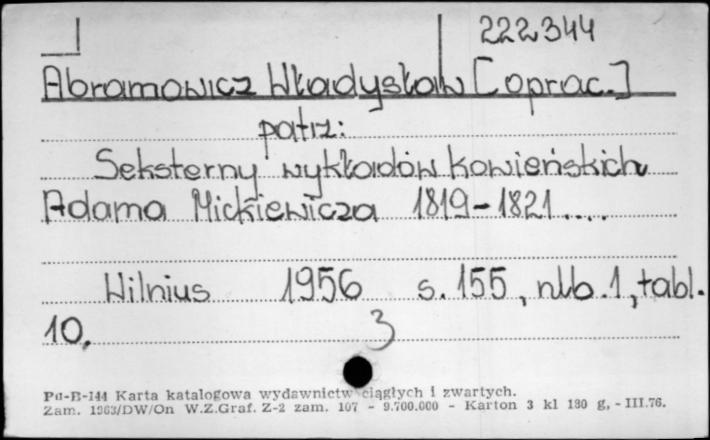 222344
Abramowicz Władysław [oprac.]
patrz:
Seksterny wykładów kowieńskich
Adama Mickiewicza 1819-1821....
Wilnius 1956 s. 155, nlb. 1, tabl.
10.
3
Pu-B-144 Karta katalogowa wydawnictw ciągłych i zwartych.
Zam. 1963/DW/On W.Z.Graf. Z-2 zam. 107 - 9.700.000 - Karton 3 kl 180 g, - III.76.